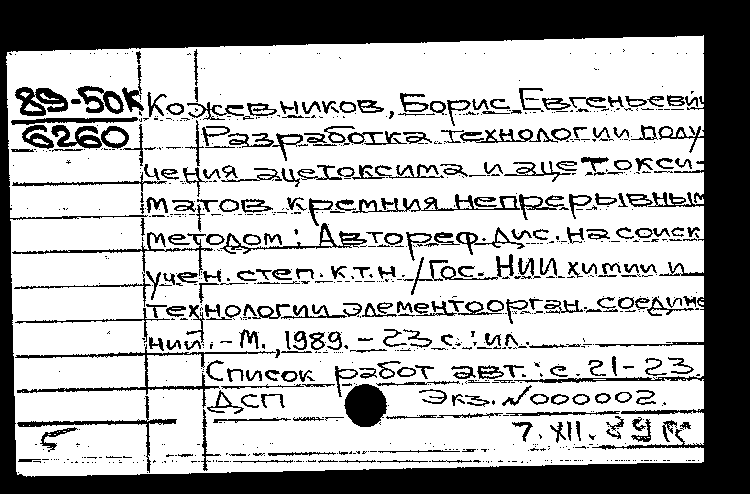 89-50К Кожевников, Борис Евгеньеви
6260 Разработка технологии полу-
чения ацетоксима и ацетокси-
матов кремния непрерывным
методом: Автореф. дис. на соиск
учен. степ. к.т.н. / Гос. НИИ химии и
технологии элементоорган. соедине
ний. - М., 1989. - 23 с.: ил.
Список работ авт.: с. 21-23.
ДСП Экз. N000002.
7. XII. 89